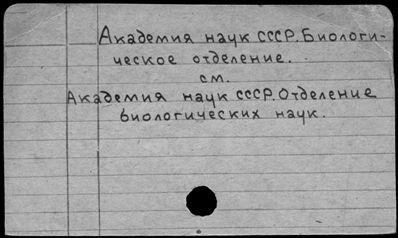 Академия наук СССР. Биологи-
ческое отделение.
см.
Академия наук СССР. Отделение
биологических наук.